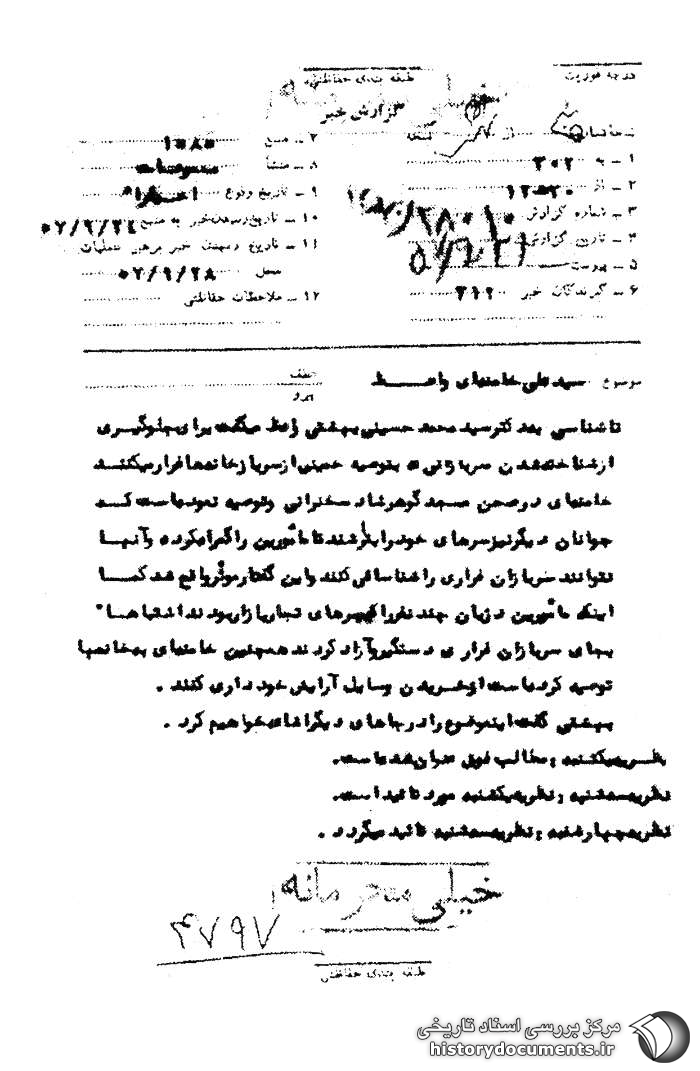 درجه فوریت
طبقه بندی حفاظتی
گزارش خبر
۱ ـ به ۳۰۲
۲ ـ از
۳ ـ شماره گزارش
۴ ـ تاریخ گزارش
۵ ـ پیوست
۶ ـ گیرندگان خبر ۳۱۲
۷ ـ منبع
۸ ـ منشأ مسموعات
۹ ـ تاریخ وقوع اخیرا"
۱۰ ـ تاریخ رسیدن خبر به منبع
۱۱ ـ تاریخ رسیدن خبر برهبر عملیات
محل ۵۲/۹/۲۸
۱۲ ـ ملاحظات حفاظتی
موضوع سید علی خامنه‌ای واعظ
عطف
پیرو
ناشناسی بعد کترسید محمد حسینی بهشتی واعظ میگفت برای جلوگیری
از شناخته‌شدن سربازانی که بتوصیه خمینی از سربازخانه‌ها فرار میکنند
خامنه‌ای در صحن مسجد گوهرشاد سخنرانی وتوصیه نموده‌است که
جوانان دیگر نیز سرهای خود را بتراشند تا مأمورین را گمراه کرده و آنها
نتوانند سربازان فراری را شناسائی کنند و این گفتار موثر واقع شد کما
اینکه مأمورین دژبان چند نفر را که پسرهای تجار بازار بودند اشتباها"
بجای سربازان فراری دستگیر وآزاد کردند همچنین خامنه‌ای به خانمها
توصیه کرده‌است از خریدن وسایل آرایش خود داری کنند .
بهشتی گفت اینموضوع را در جاهای دیگر افشاء خواهیم کرد .
نظریه‌یکشنبه : مطالب فوق عنوان شده‌است.
نظریه‌سه‌شنبه : نظریه‌یکشنبه مورد تائید است.
نظریه‌چهارشنبه : نظریه‌سه‌شنبه تائید میگردد .
خیلی محرمانه
۴۷۹۷
طبقه بندی حفاظتی
مرکز بررسی اسناد تاریخی
historydocuments.ir